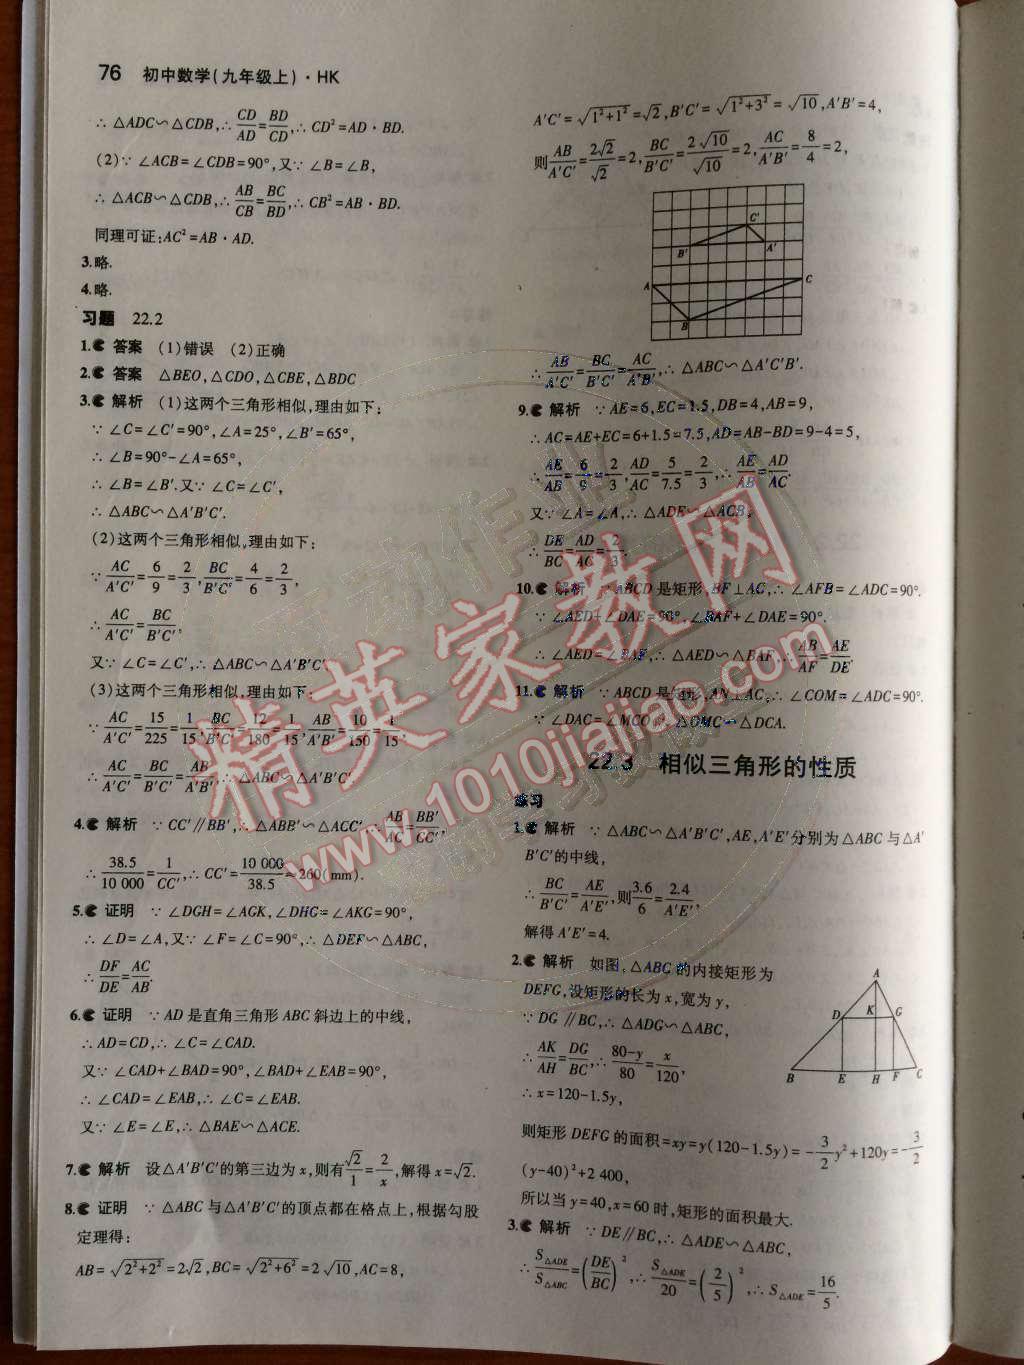 76 初中数学(九年级上)·HK
∴ △ADC∽△CDB,∴ CD/AD=BD/CD,∴ CD²=AD·BD.
(2)∵ ∠ACB=∠CDB=90°,又∵ ∠B=∠B,
∴ △ACB∽△CDB,∴ AB/CB=BC/BD,∴ CB²=AB·BD.
同理可证:AC²=AB·AD.
3.略.
4.略.
习题 22.2
1. 答案 (1)错误 (2)正确
2. 答案 △BEO,△CDO,△CBE,△BDC
3. 解析 (1)这两个三角形相似,理由如下:
∵ ∠C=∠C'=90°,∠A=25°,∠B'=65°,
∴ ∠B=90°-∠A=65°,
∴ ∠B=∠B'.又∵ ∠C=∠C',
∴ △ABC∽△A'B'C'.
(2)这两个三角形相似,理由如下:
∵ AC/A'C'=6/9=2/3,BC/B'C'=4/6=2/3,
∴ AC/A'C'=BC/B'C',
又∵ ∠C=∠C',∴ △ABC∽△A'B'C'.
(3)这两个三角形相似,理由如下:
∵ AC/A'C'=15/225=1/15,BC/B'C'=12/180=1/15,AB/A'B'=10/150=1/15,
∴ AC/A'C'=BC/B'C'=AB/A'B',∴ △ABC∽△A'B'C'.
4. 解析 ∵ CC'∥BB',∴ △ABB'∽△ACC',∴ AB/AC=BB'/CC',
∴ 38.5/10 000=1/CC',∴ CC'=10 000/38.5≈260(mm).
5. 证明 ∵ ∠DGH=∠AGK,∠DHG=∠AKG=90°,
∴ ∠D=∠A,又∵ ∠F=∠C=90°,∴ △DEF∽△ABC,
∴ DF/DE=AC/AB.
6. 证明 ∵ AD是直角三角形ABC斜边上的中线,
∴ AD=CD,∴ ∠C=∠CAD.
又∵ ∠CAD+∠BAD=90°,∠BAD+∠EAB=90°,
∴ ∠CAD=∠EAB,∴ ∠C=∠EAB.
又∵ ∠E=∠E,∴ △BAE∽△ACE.
7. 解析 设△A'B'C'的第三边为x,则有√2/1=2/x,解得x=√2.
8. 证明 ∵ △ABC与△A'B'C'的顶点都在格点上,根据勾股
定理得:
AB=√(2²+2²)=2√2,BC=√(2²+6²)=2√10,AC=8,
A'C'=√(1²+1²)=√2,B'C'=√(1²+3²)=√10,A'B'=4,
则AB/A'C'=2√2/√2=2,BC/B'C'=2√10/√10=2,AC/A'B'=8/4=2,
C'
B' A'
A C
B
∴ AB/A'C'=BC/B'C'=AC/A'B',∴ △ABC∽△A'C'B'.
9. 解析 ∵ AE=6,EC=1.5,DB=4,AB=9,
∴ AC=AE+EC=6+1.5=7.5,AD=AB-BD=9-4=5,
∴ AE/AB=6/9=2/3,AD/AC=5/7.5=2/3,∴ AE/AB=AD/AC.
又∵ ∠A=∠A,∴ △ADE∽△ACB,
∴ DE/BC=AD/AC=2/3.
10. 解析 ∵ ABCD是矩形,BF⊥AC,∴ ∠AFB=∠ADC=90°.
∵ ∠AED+∠DAE=90°,∠BAF+∠DAE=90°,
∴ ∠AED=∠BAF,∴ △AED∽△BAF,∴ AB/AF=AE/DE.
11. 解析 ∵ ABCD是矩形,AN⊥AC,∴ ∠COM=∠ADC=90°.
∵ ∠DAC=∠MCO,∴ △OMC∽△DCA.
22.3 相似三角形的性质
练习
1. 解析 ∵ △ABC∽△A'B'C',AE,A'E'分别为△ABC与△A'
B'C'的中线,
∴ BC/B'C'=AE/A'E',则3.6/6=2.4/A'E',
解得A'E'=4.
2. 解析 如图,△ABC的内接矩形为
DEFG,设矩形的长为x,宽为y,
∵ DG∥BC,∴ △ADG∽△ABC,
∴ AK/AH=DG/BC,∴ (80-y)/80=x/120,
∴ x=120-1.5y,
A
D K G
B E H F C
则矩形DEFG的面积=xy=y(120-1.5y)=-3/2y²+120y=-3/2
(y-40)²+2 400,
所以当y=40,x=60时,矩形的面积最大.
3. 解析 ∵ DE∥BC,∴ △ADE∽△ABC,
∴ S△ADE/S△ABC=(DE/BC)²,∴ S△ADE/20=(2/5)²,∴ S△ADE=16/5.
精英家教网
www.1010jiajiao.com